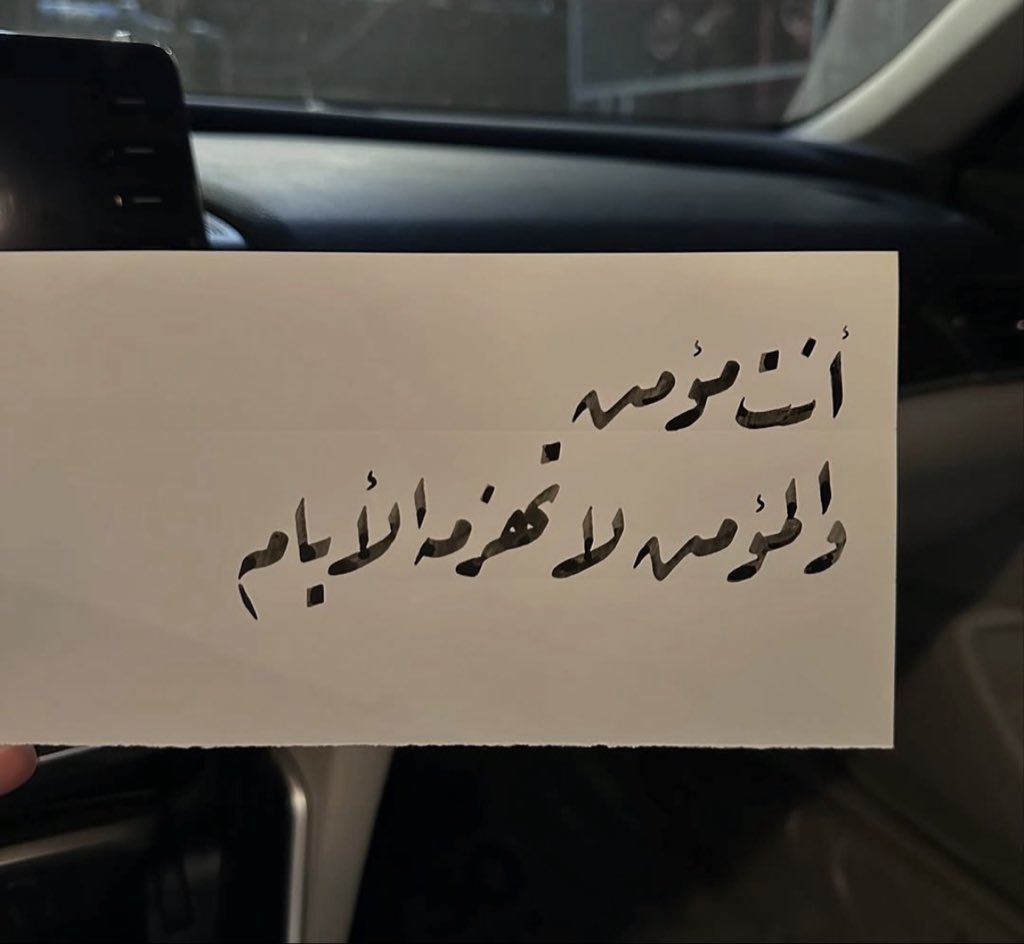 أنت مؤمن
والمؤمن لا تهزمه الأيام